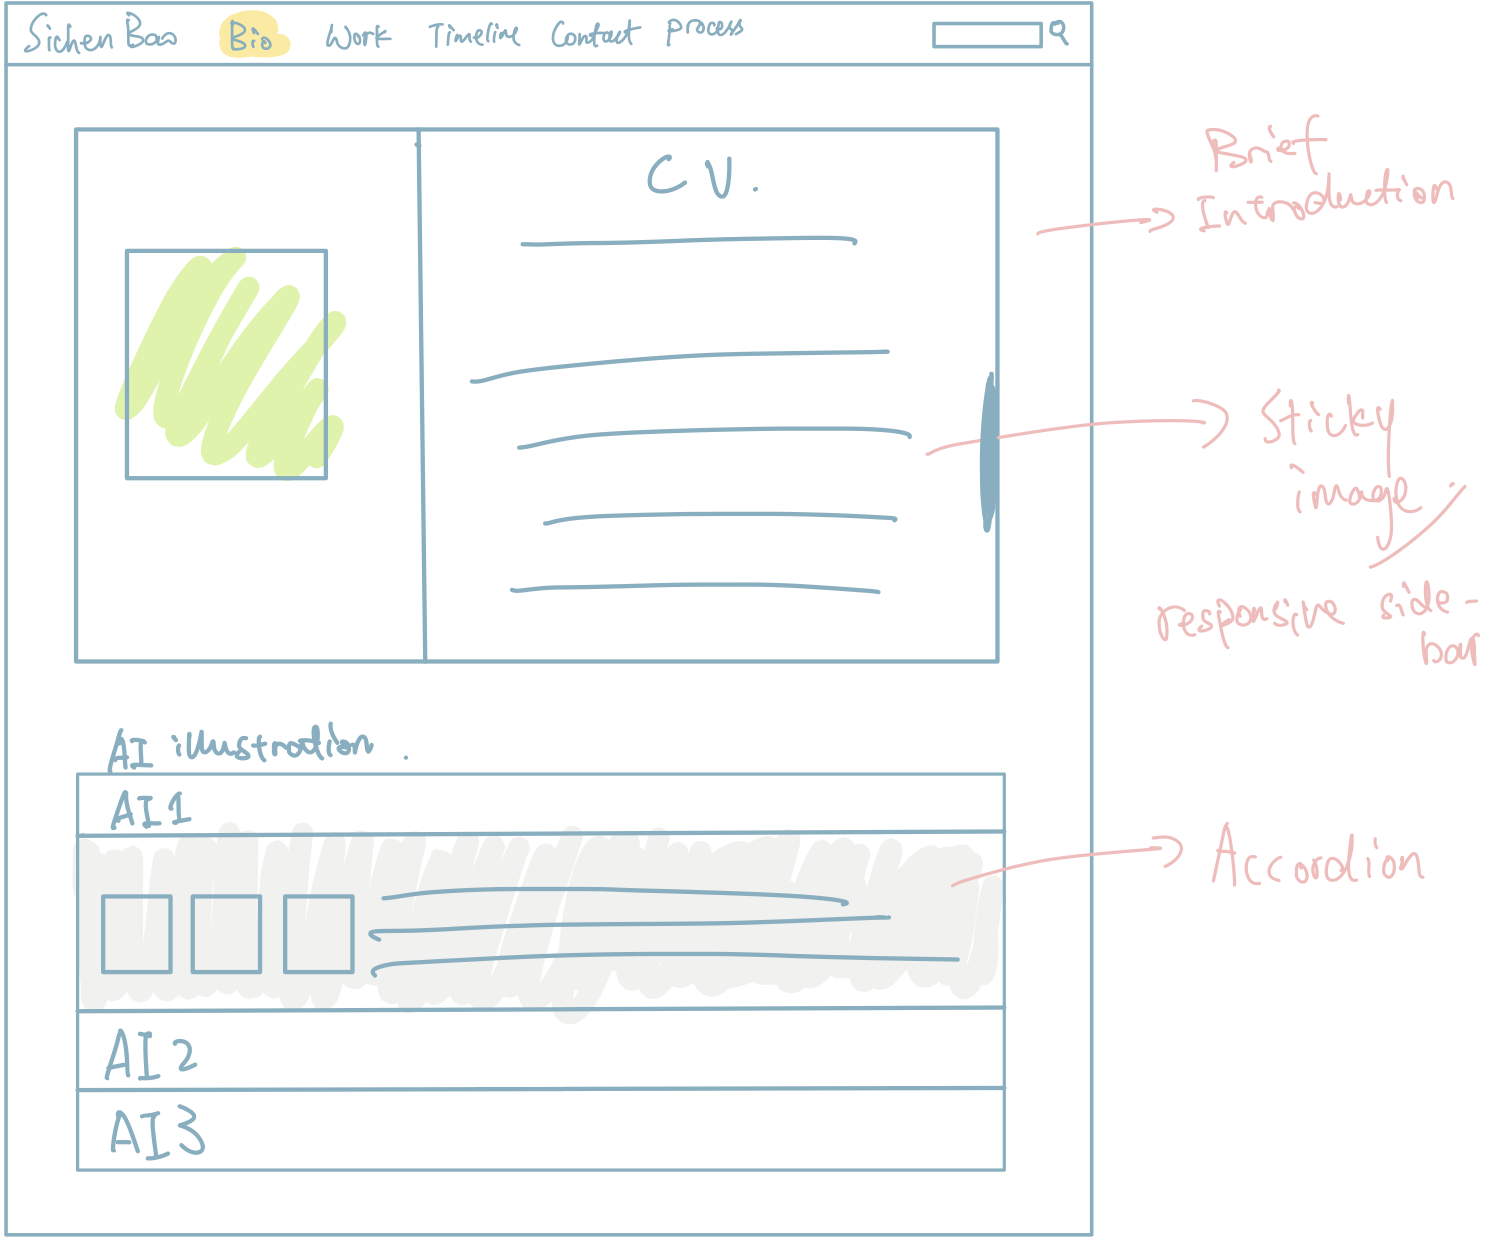 Sichen Bao Bio Work Timeline Contact Process
CV.
Brief
Introduction
Sticky
image
responsive side-
bar
AI illustration.
AI1
Accordion
AI2
AI3